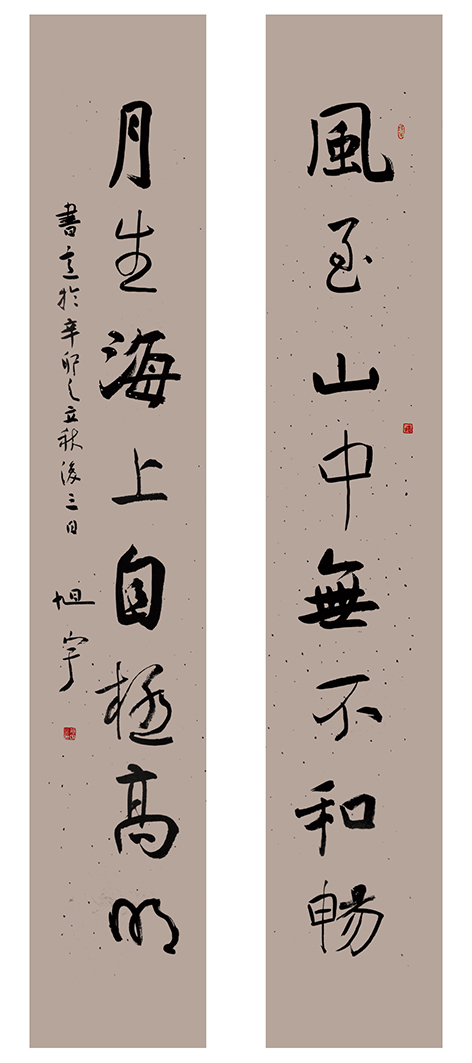 風至山中無不和暢
月生海上自極高明
書於辛卯之立秋後三日
旭宇